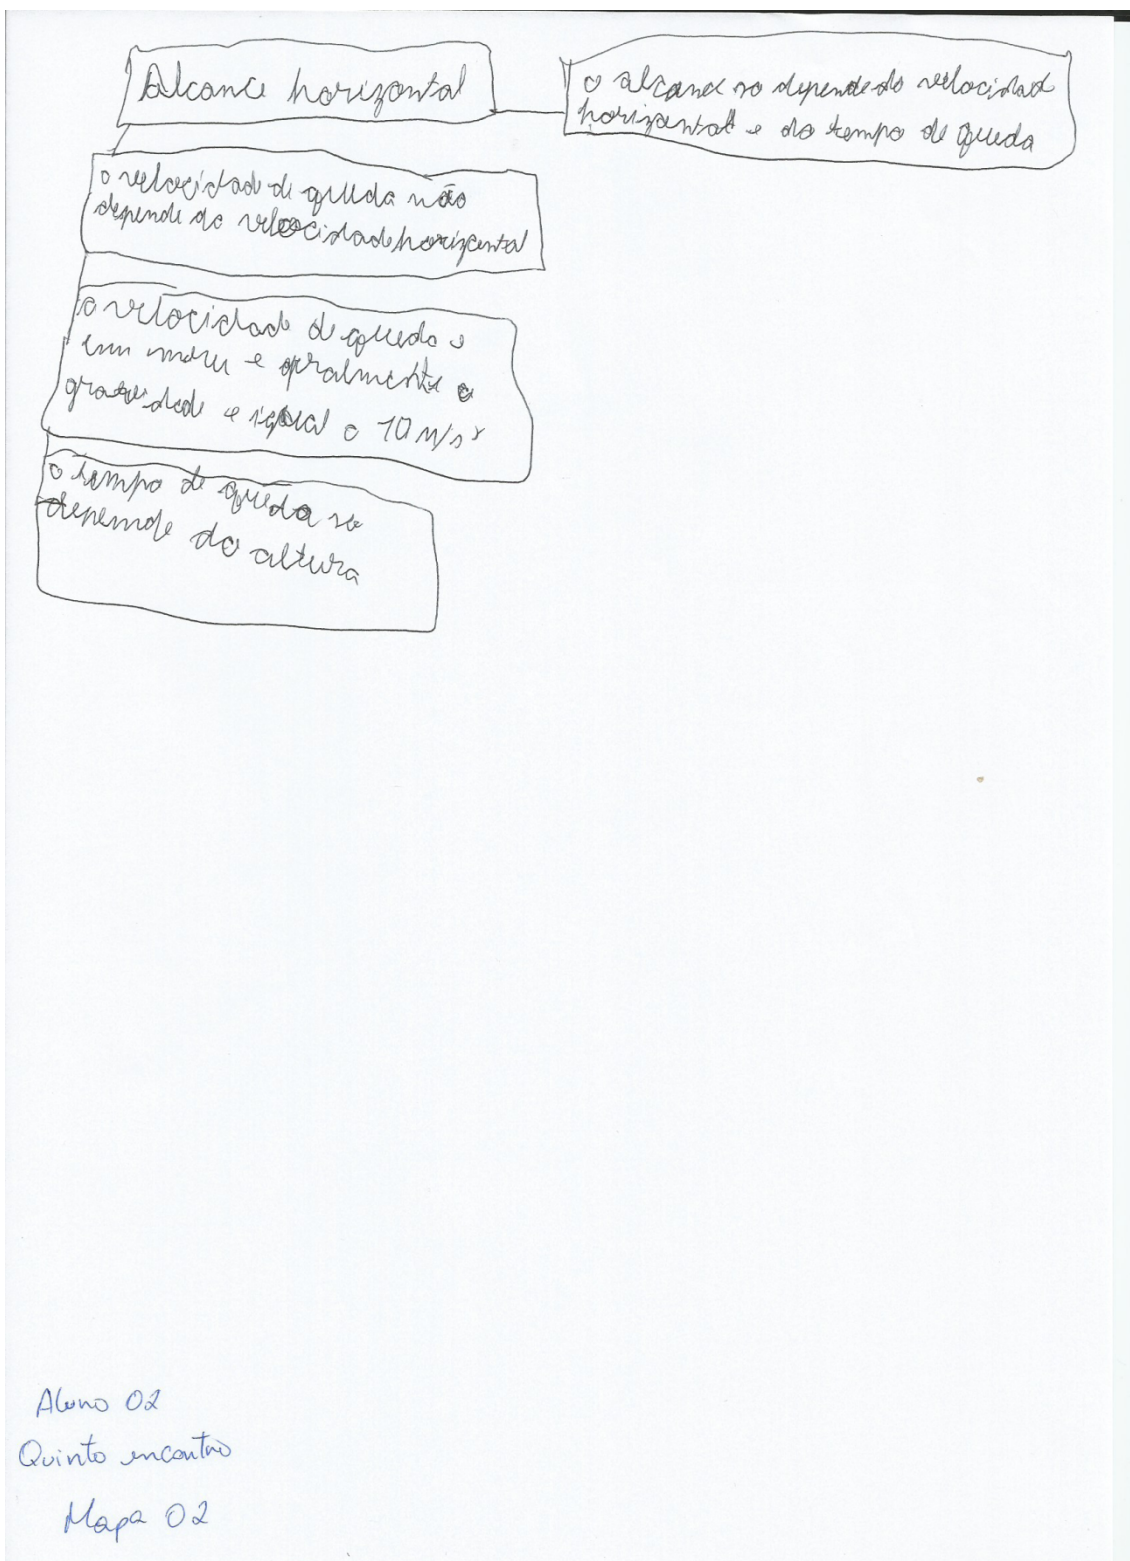 Alcance horizontal
o alcance so depende da velocidad
horizontal e do tempo de queda
a velocidade de queda não
depende da velocidade horizontal
a velocidade de queda e
em mruv e geralmente a
gravidade e igual a 10 m/s²
o tempo de queda so
depende da altura
Aluno 02
Quinto encontro
Mapa 02